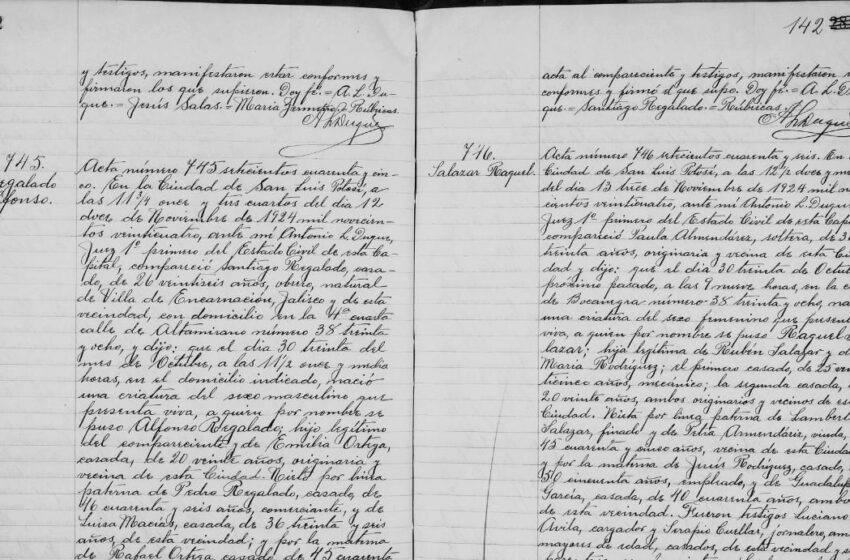 2
y testigos, manifestaron estar conformes y
firmaron los que supieron. Doy fe.= A. L. Du-
que.= Jesús Salas.= María Rúbricas.
A L Duque
745.
egalado
fonso.
Acta número 745 setecientos cuarenta y cin-
co. En la Ciudad de San Luis Potosí, a
las 11 3/4 once y tres cuartos del día 12
doce de Noviembre de 1924 mil novecien-
tos veinticuatro, ante mí Antonio L. Duque,
Juez 1º primero del Estado Civil de esta Ca-
pital, compareció Santiago Regalado, casa-
do, de 26 veintiseis años, obrero, natural
de Villa de Encarnación, Jalisco y de esta
vecindad, con domicilio en la 4ª cuarta
calle de Altamirano número 38 treinta
y ocho, y dijo: que el día 30 treinta del
mes de Octubre, a las 11 1/2 once y media
horas, en el domicilio indicado, nació
una criatura del sexo masculino que
presenta viva, a quien por nombre se
puso Alfonso Regalado, hijo legítimo
del compareciente y de Emilia Ortiga,
casada, de 20 veinte años, originaria y
vecina de esta Ciudad. Nieto por línea
paterna de Pedro Regalado, casado, de
46 cuarenta y seis años, comerciante, y de
Luisa Macías, casada, de 36 treinta y seis
años, de esta vecindad; y por la materna
de Rafael Ortiga, casado, de 45 cuarenta
142
acta al compareciente y testigos, manifestaron
conformes y firmó el que supo. Doy fe.= A. L. Du
que.= Santiago Regalado.= Rúbricas.
A L Duque
746.
Salazar Raquel.
Acta número 746 setecientos cuarenta y seis. En
Ciudad de San Luis Potosí, a las 12 1/2 doce y me
del día 13 trece de Noviembre de 1924 mil
cientos veinticuatro, ante mí Antonio L. Duque
Juez 1º primero del Estado Civil de esta Capi
compareció Paula Almendárez, soltera, de 3
treinta años, originaria y vecina de esta Ciu
dad y dijo: que el día 30 treinta de Octu
próximo pasado, a las 9 nueve horas, en la c
de Bocanegra número 38 treinta y ocho, na
una criatura del sexo femenino que presen
viva, a quien por nombre se puso Raquel
lazar; hija legítima de Rubén Salazar y d
María Rodríguez; el primero casado, de 25 vein
ticinco años, mecánico; la segunda casada,
20 veinte años, ambos originarios y vecinos de es
Ciudad. Nieta por línea paterna de Lambert
Salazar, finado y de Petra Armendáriz, viuda,
45 cuarenta y cinco años, vecina de esta Ciuda
y por la materna de Jesús Rodríguez, casado,
50 cincuenta años, empleado, y de Guadalup
García, casada, de 40 cuarenta años, ambo
de esta vecindad. Fueron testigos Luciano
Ávila, cargador y Serapio Cuellar, jornalero, am
mayores de edad, casados, de esta vecindad y